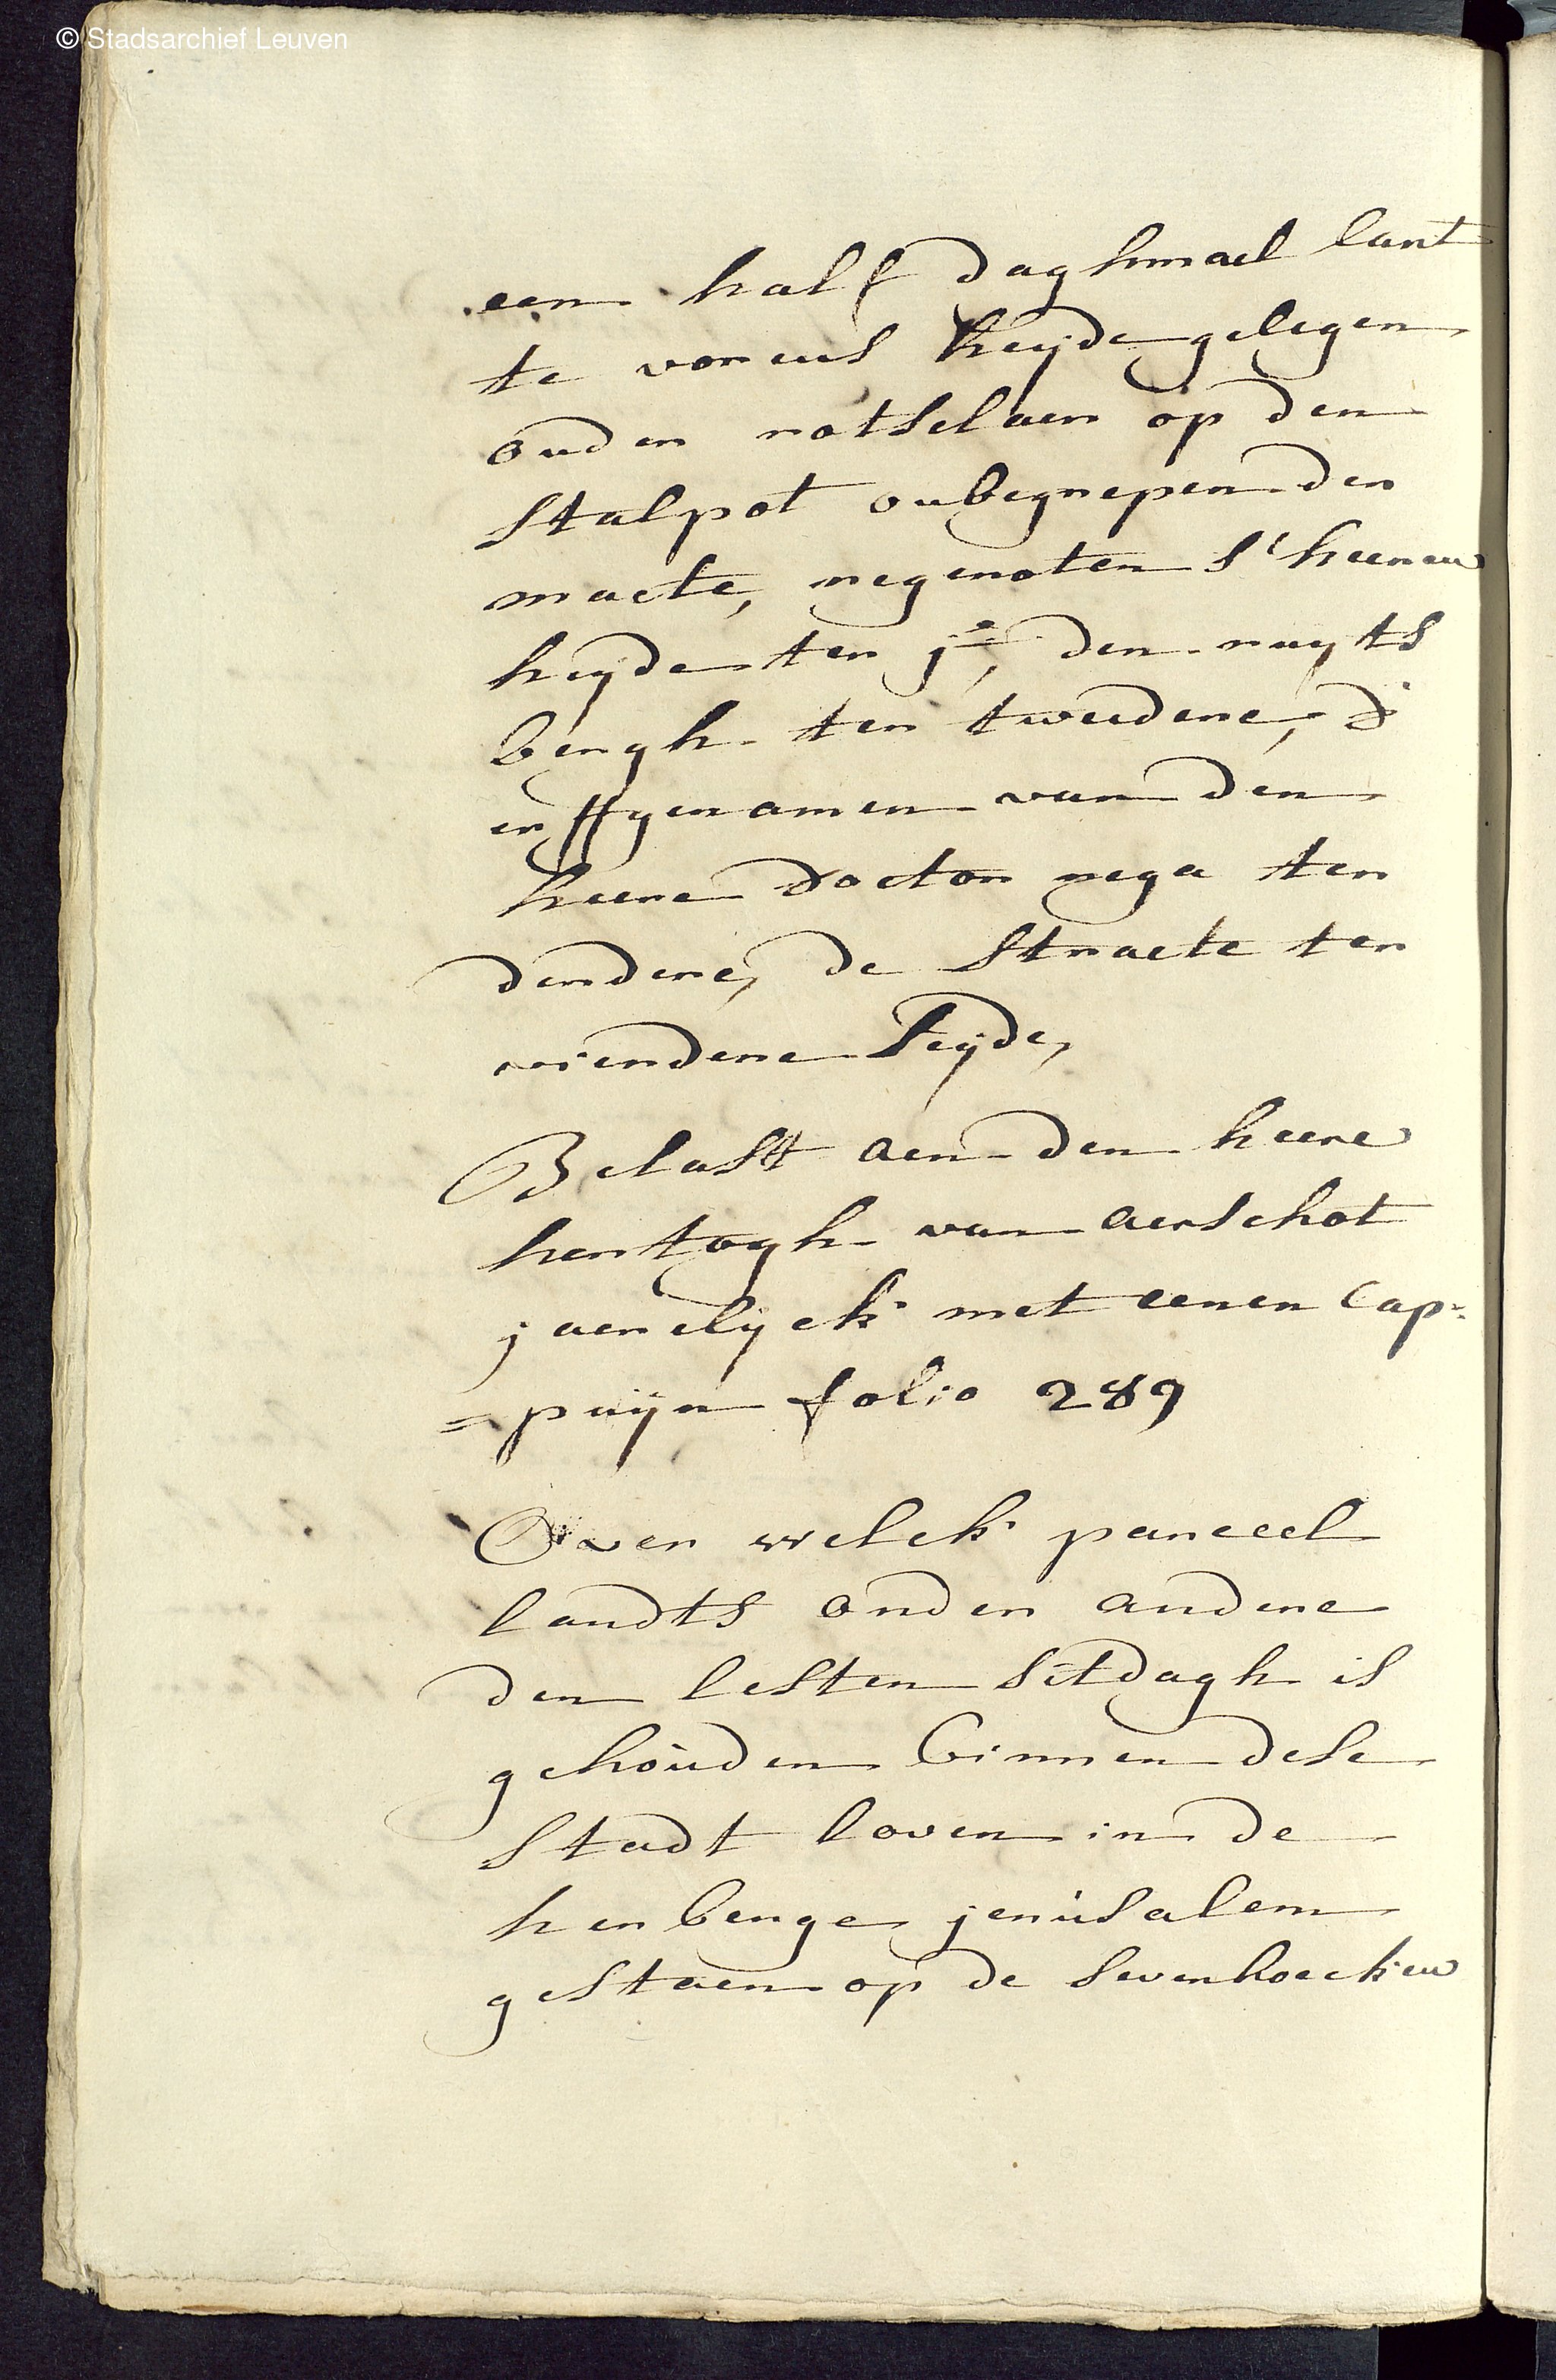 © Stadsarchief Leuven
een half daghmael lant
te voreus heyde gelegen
onder rotselaer op den
stalpot onbegrepen der
maete, regenoten s'heeren
heyde ter j.e, den ruyts
bergh ter tweedere, d'
erffgenamen van den
heere doctor rega ter
derdere, de straete ter
vierdere seyde,
Belast aen den heere
hertogh van aerschot
jaerelyck met eenen cap=
=puijn folio 289
Over welck parceel
landts onder andere
den lesten sitdagh is
gehouden binnen dese
stadt loven in de
herberge jerusalem
gestaen op de sevenhoecken